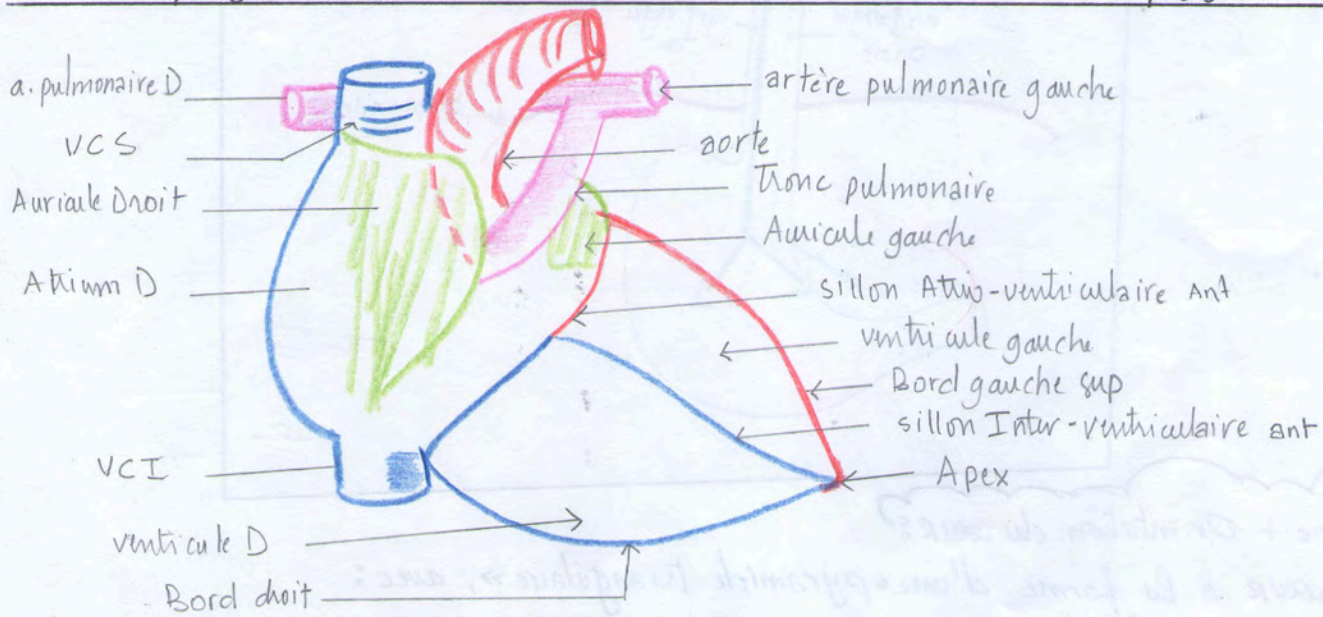 a. pulmonaire D
VCS
Auricule Droit
Atrium D
VCI
ventricule D
Bord droit
artère pulmonaire gauche
aorte
Tronc pulmonaire
Auricule gauche
sillon Atrio-ventriculaire Ant
ventricule gauche
Bord gauche sup
sillon Inter-ventriculaire ant
Apex